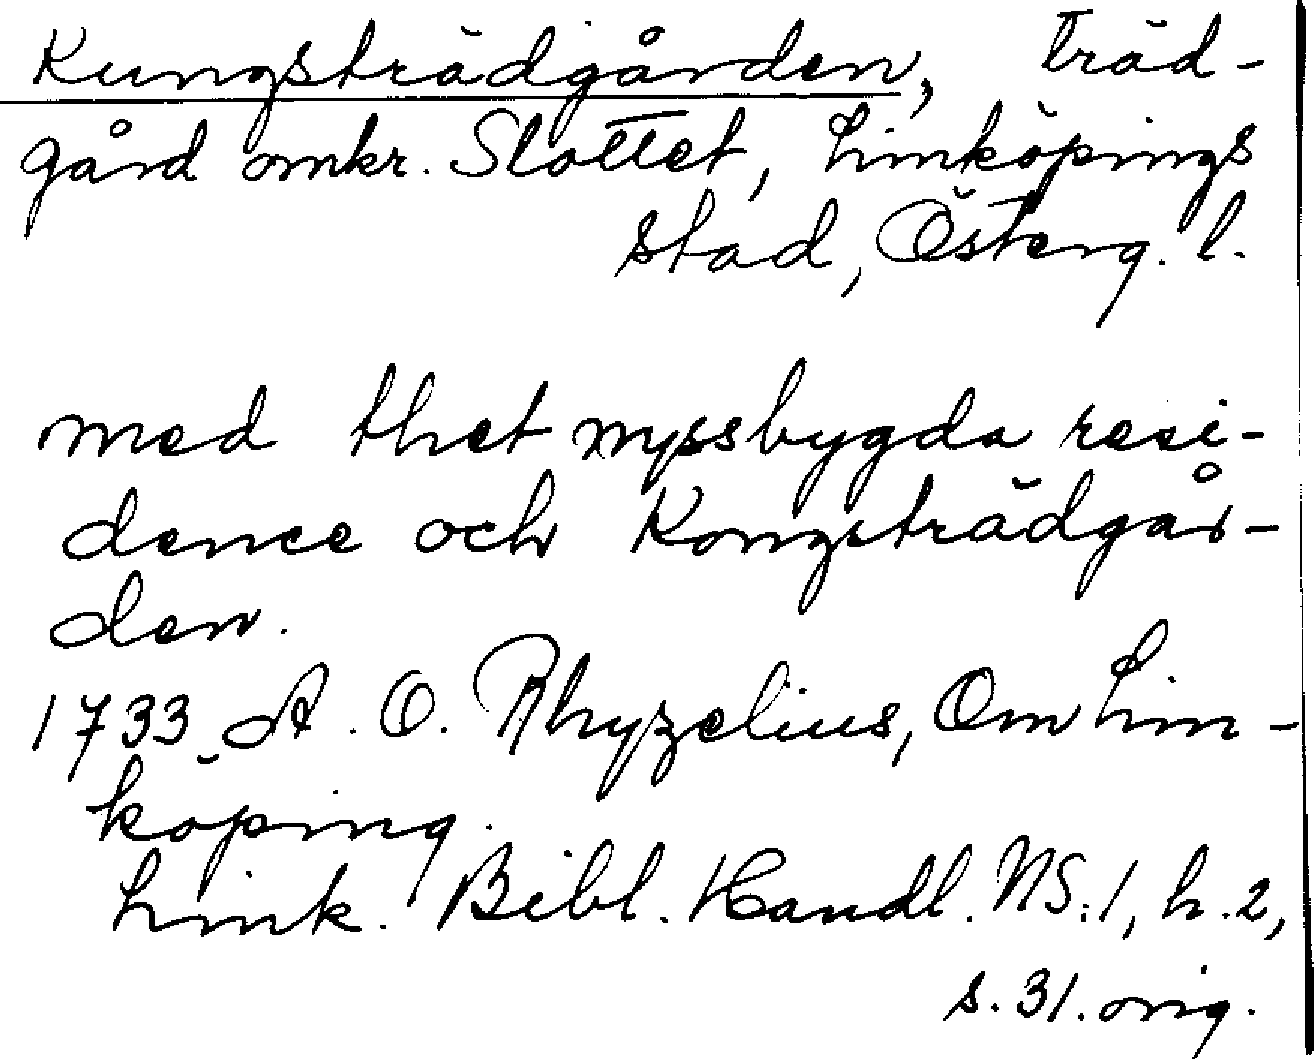 Kungsträdgården, träd-
gård omkr. Slottet, Linköpings
stad, Österg. l.
med thet nyssbygda resi-
dence och Kongsträdgår-
den.
1733 A. O. Rhyzelius, Om Lin-
köping.
Link. Bibl. Handl. NS:1, h.2,
s. 31. orig.